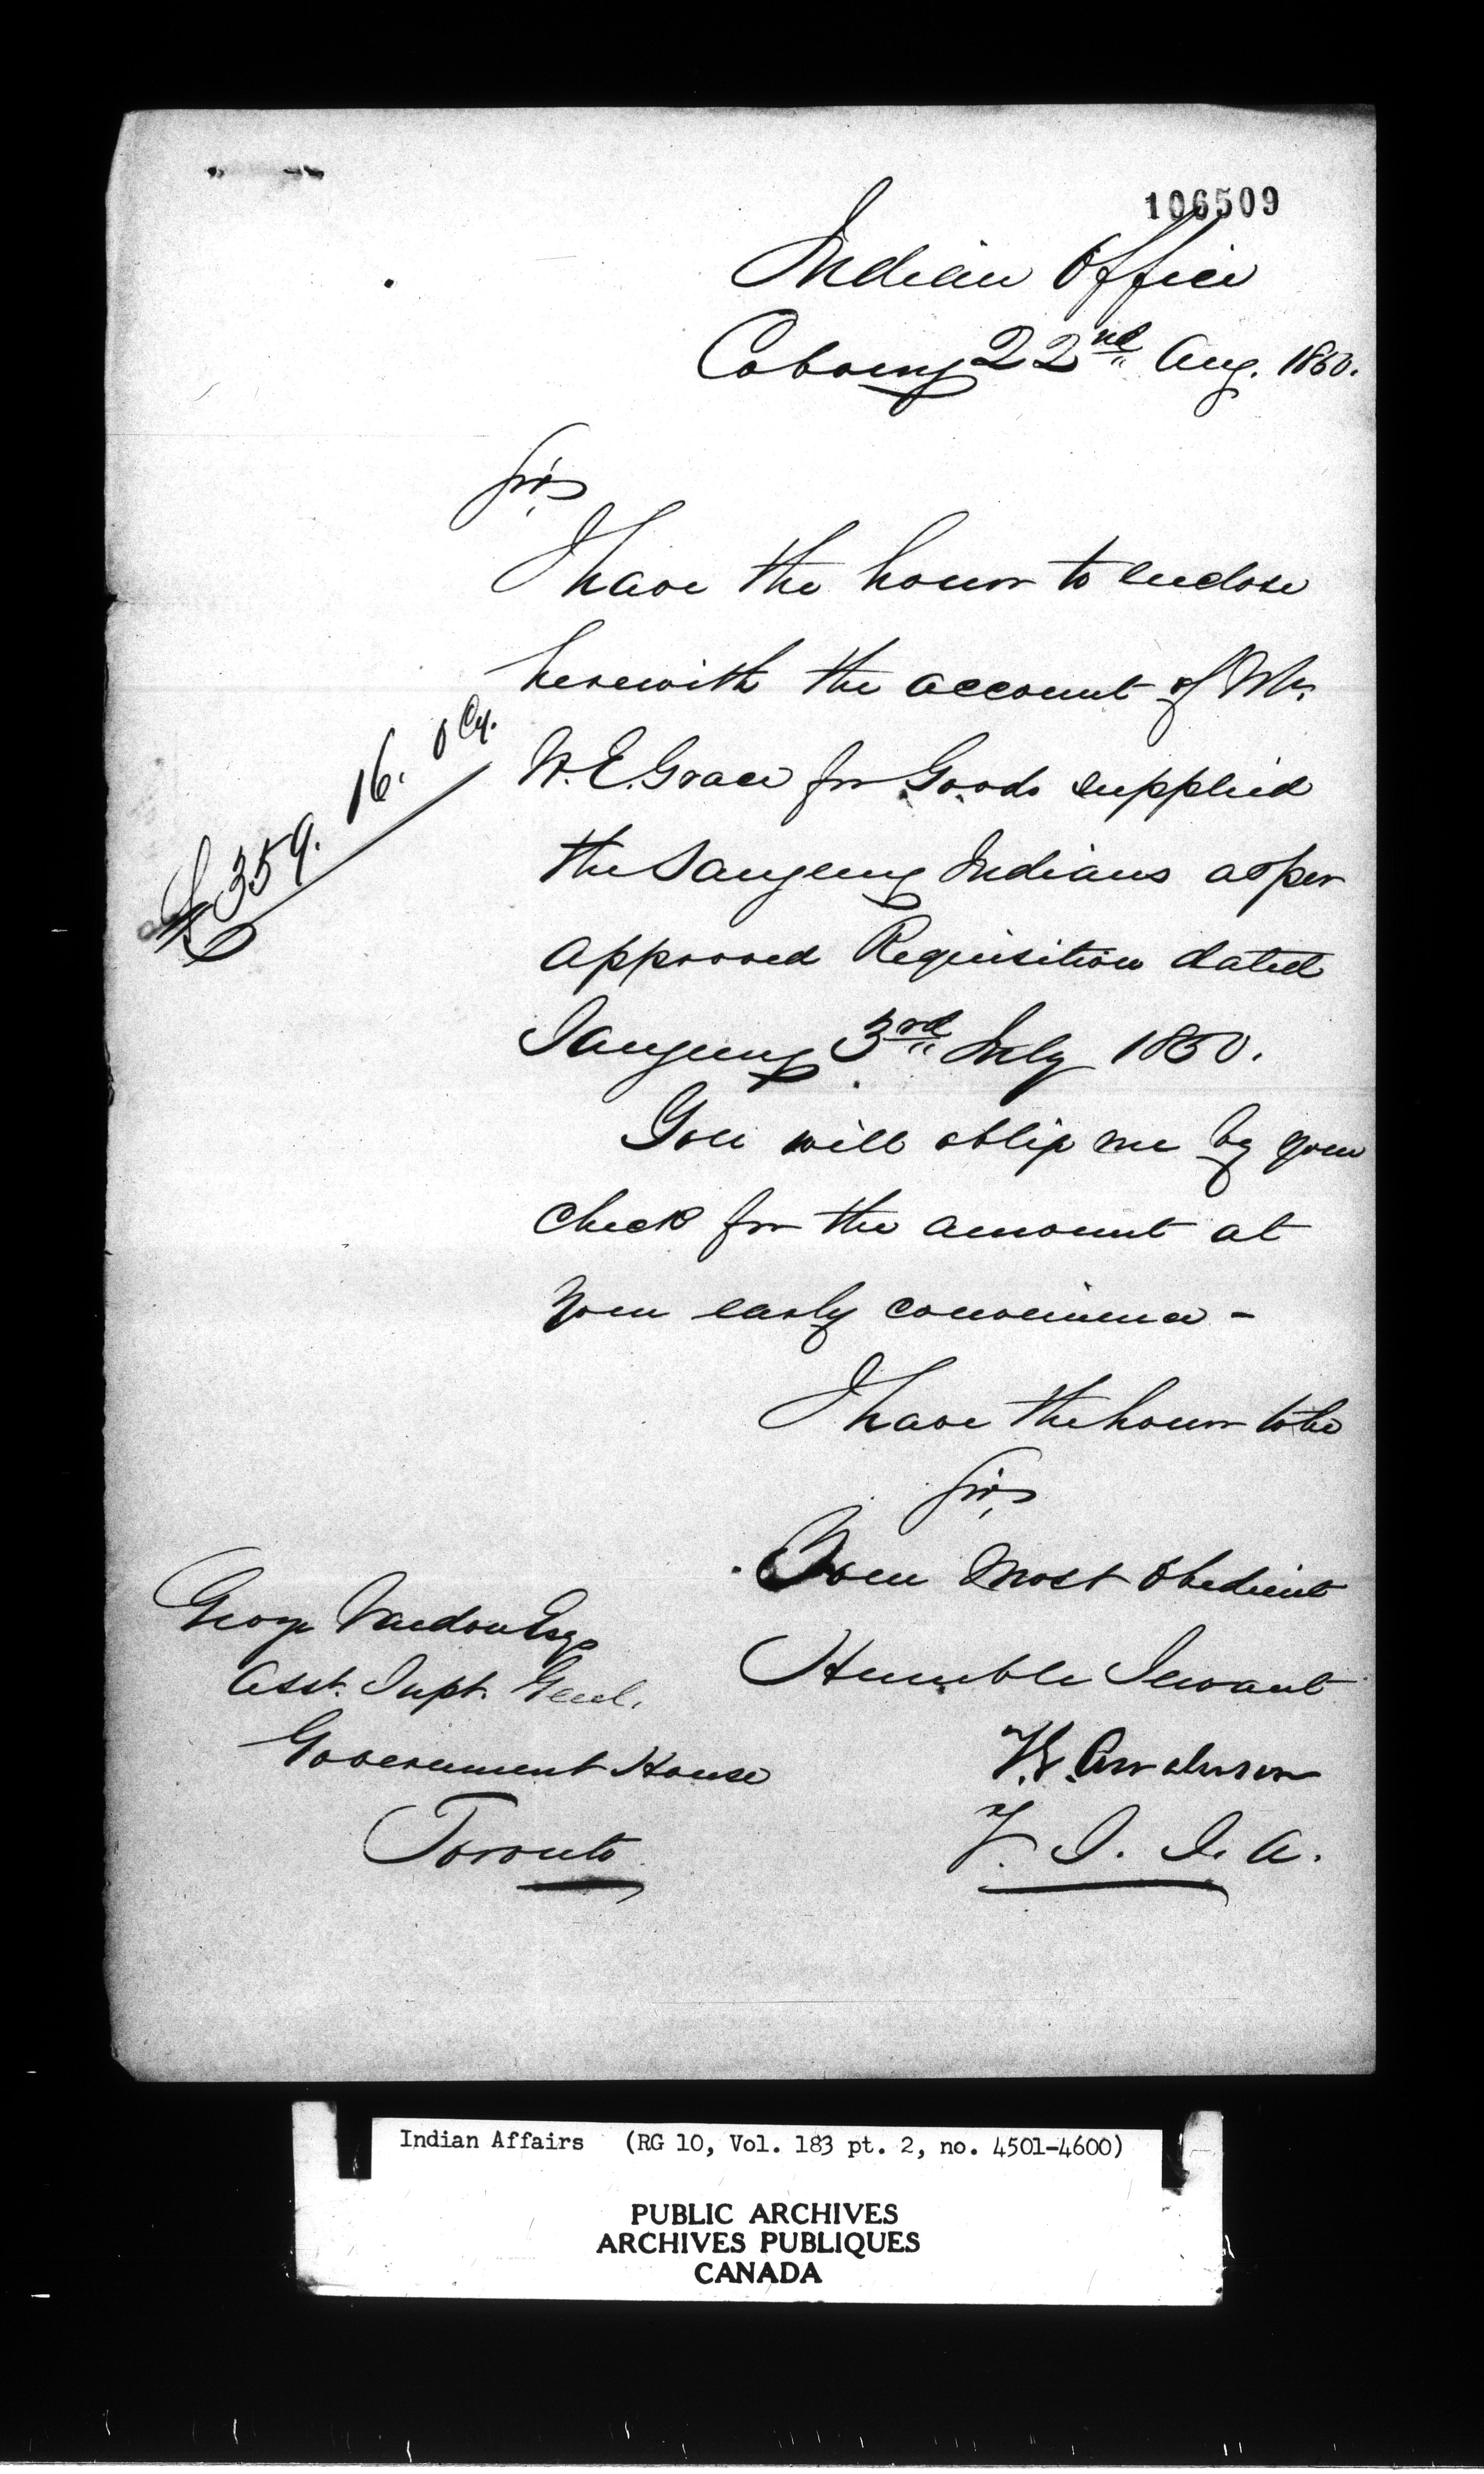 106509
Indian Office
Cobourg 22nd Aug. 1850.
Sir,
I have the honor to enclose
herewith the account of Mr.
W. E. Grace for Goods supplied
£359. 16. 0 Cy.
the Saugeeng Indians as per
approved Requisition dated
Saugeeng 3rd July 1850.
You will oblige me by your
check for the amount at
your early convenience -
I have the honor to be
Sir,
Your most obedient
Humble Servant
T. G. Anderson
V. S. I. A.
George Vardon Esqr
Asst. Supt. Genl.
Government House
Toronto
Indian Affairs (RG 10, Vol. 183 pt. 2, no. 4501-4600)
PUBLIC ARCHIVES
ARCHIVES PUBLIQUES
CANADA